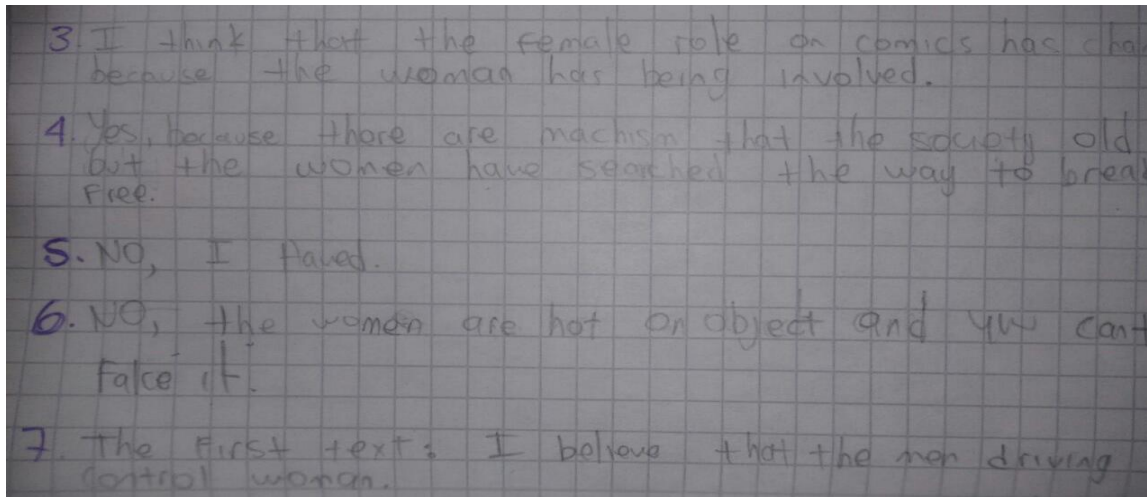 3. I think that the female role on comics has cha
because the woman has being involved.
4. Yes, because there are machism that the society old
but the women have searched the way to brea
Free.
5. NO, I
6. NO, the women are not on object and can
it.
7. The First text: I believe that the men driving
control woman.